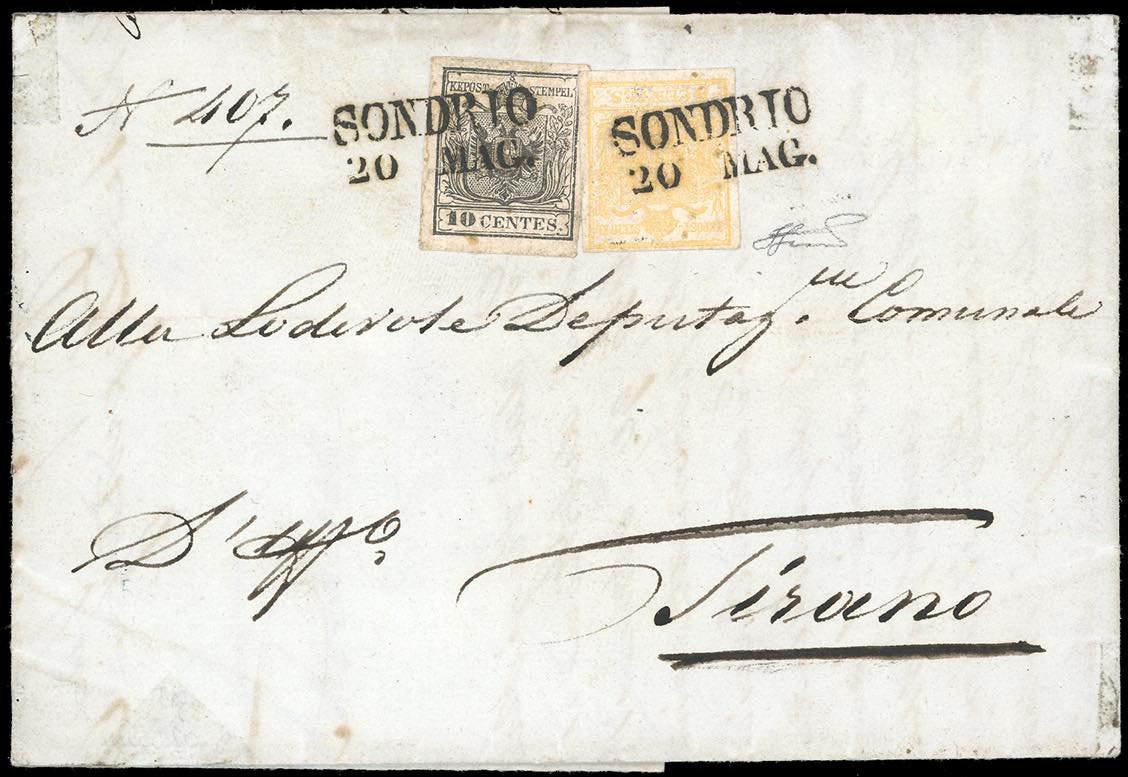 N 407.
KEPOST STEMPEL
10 CENTES.
SONDRIO
20 MAG.
SONDRIO
20 MAG.
Alla Lodevole Deputaz.ne Comunale
D'uffo.
Tirano